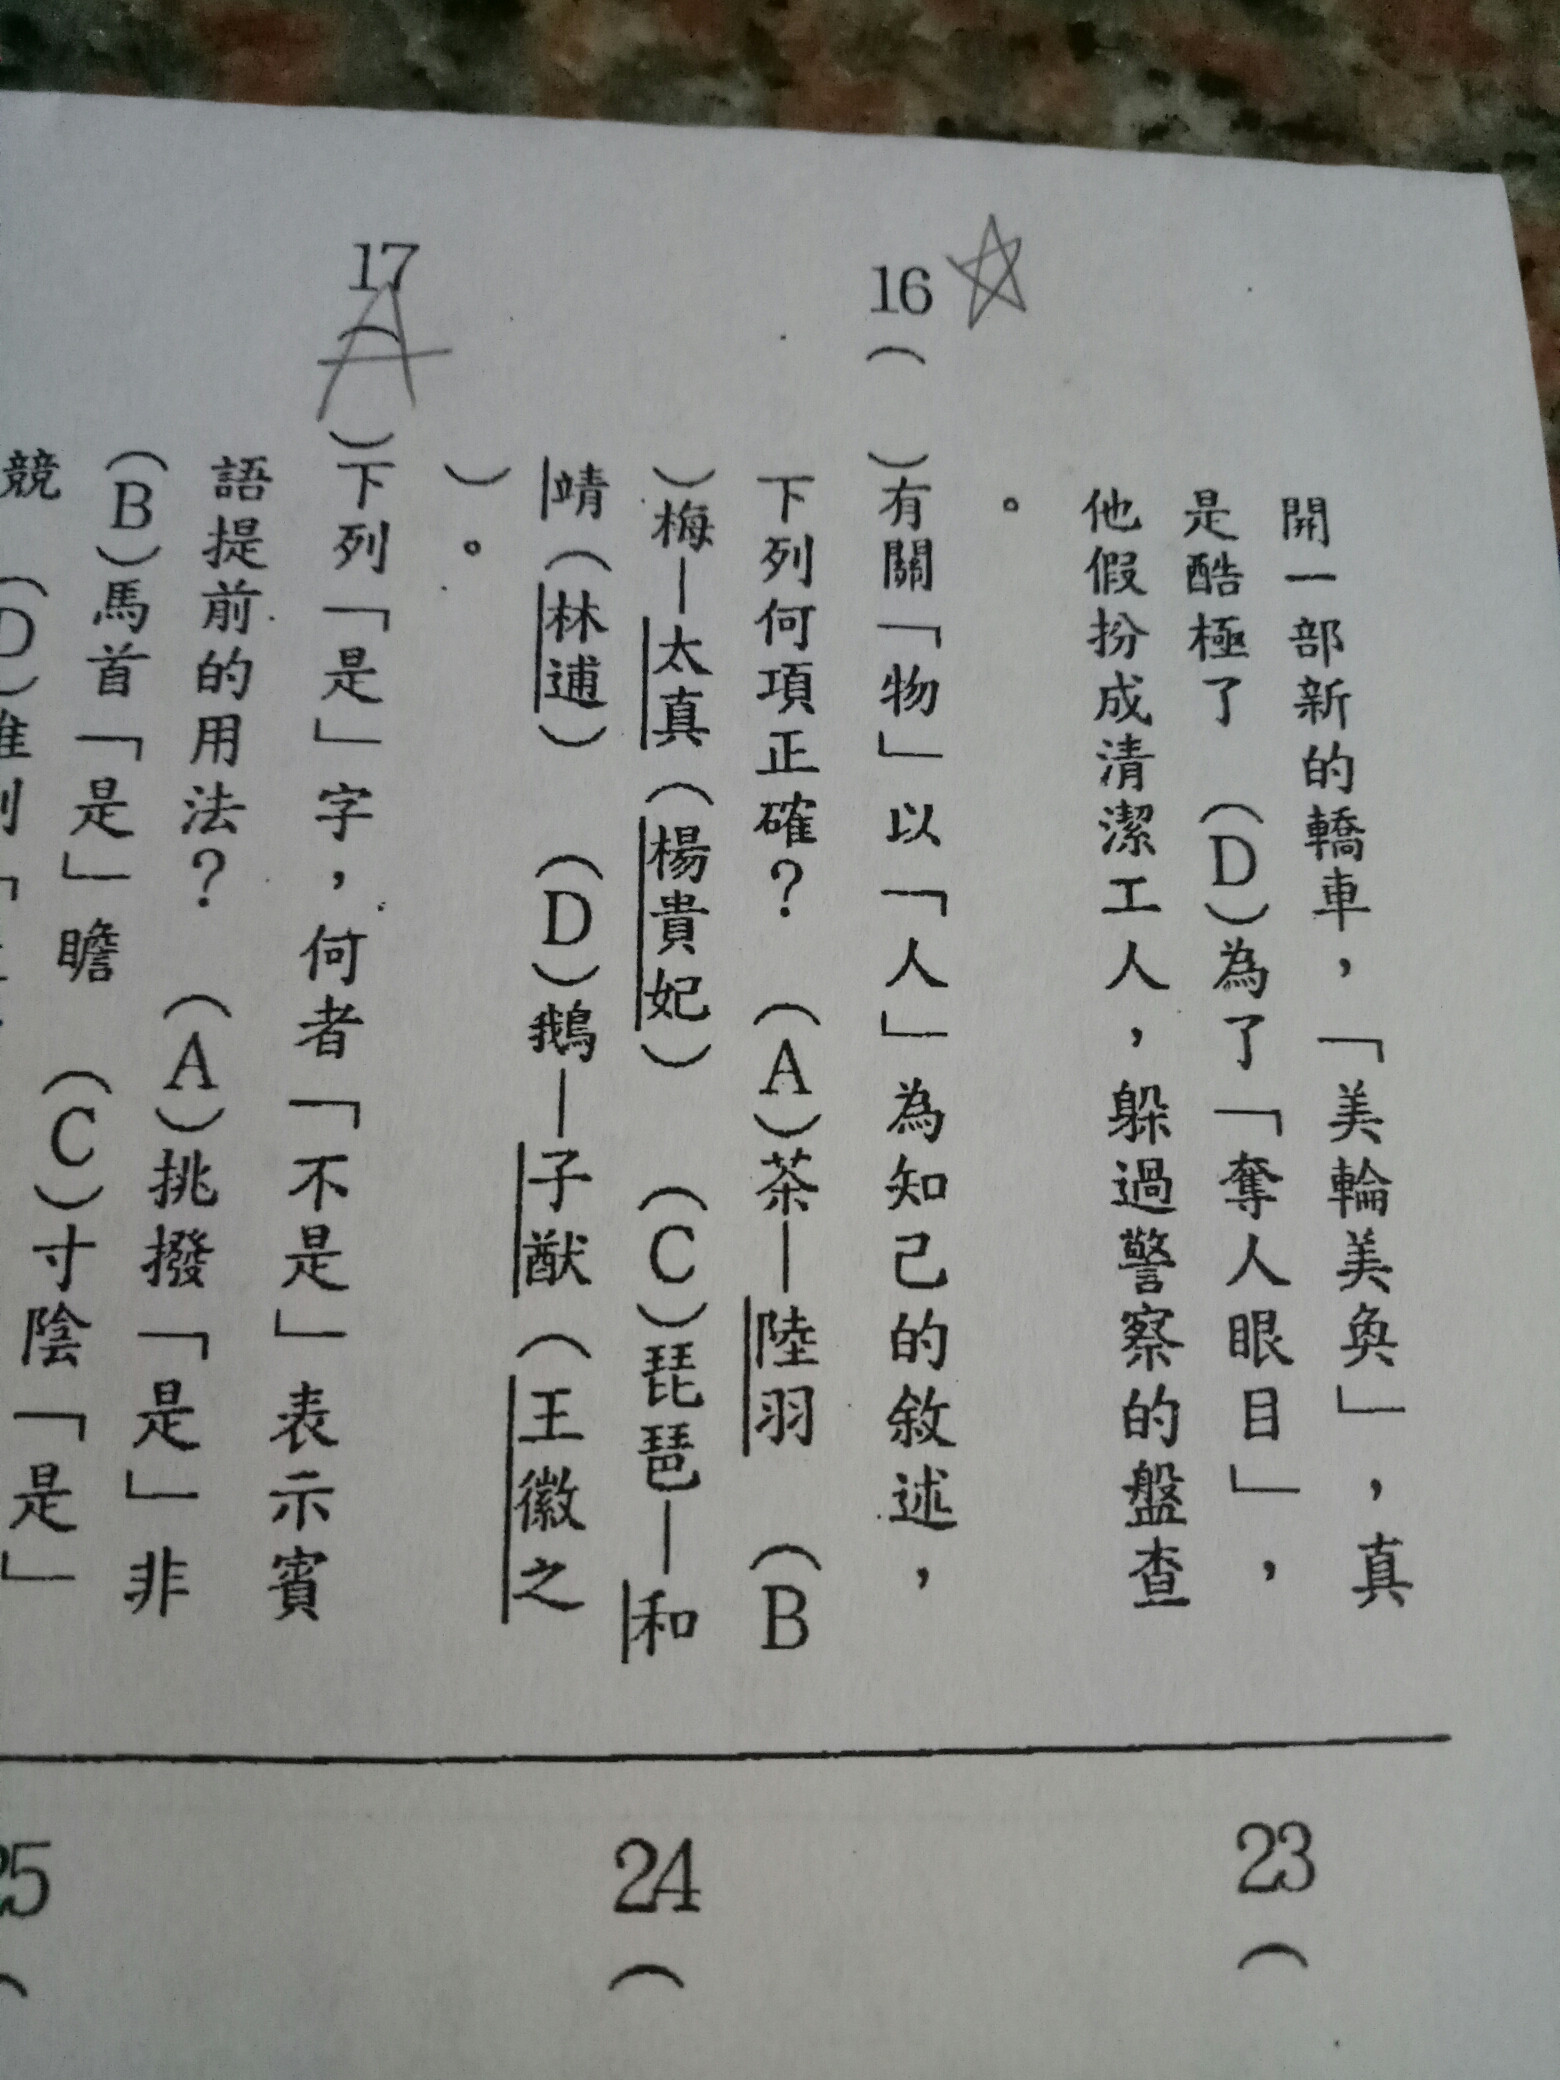 開一部新的轎車，「美輪美奐」，真
是酷極了　(D)為了「奪人眼目」，
他假扮成清潔工人，躲過警察的盤查
。
☆
16(　)有關「物」以「人」為知己的敘述，
下列何項正確？　(A)茶—陸羽　(B
)梅—太真(楊貴妃)　(C)琵琶—和
靖(林逋)　(D)鵝—子猷(王徽之
)。
17(A)下列「是」字，何者「不是」表示賓
語提前的用法？　(A)挑撥「是」非
(B)馬首「是」瞻　(C)寸陰「是」
競　(D)唯利「
23(
24(
25(